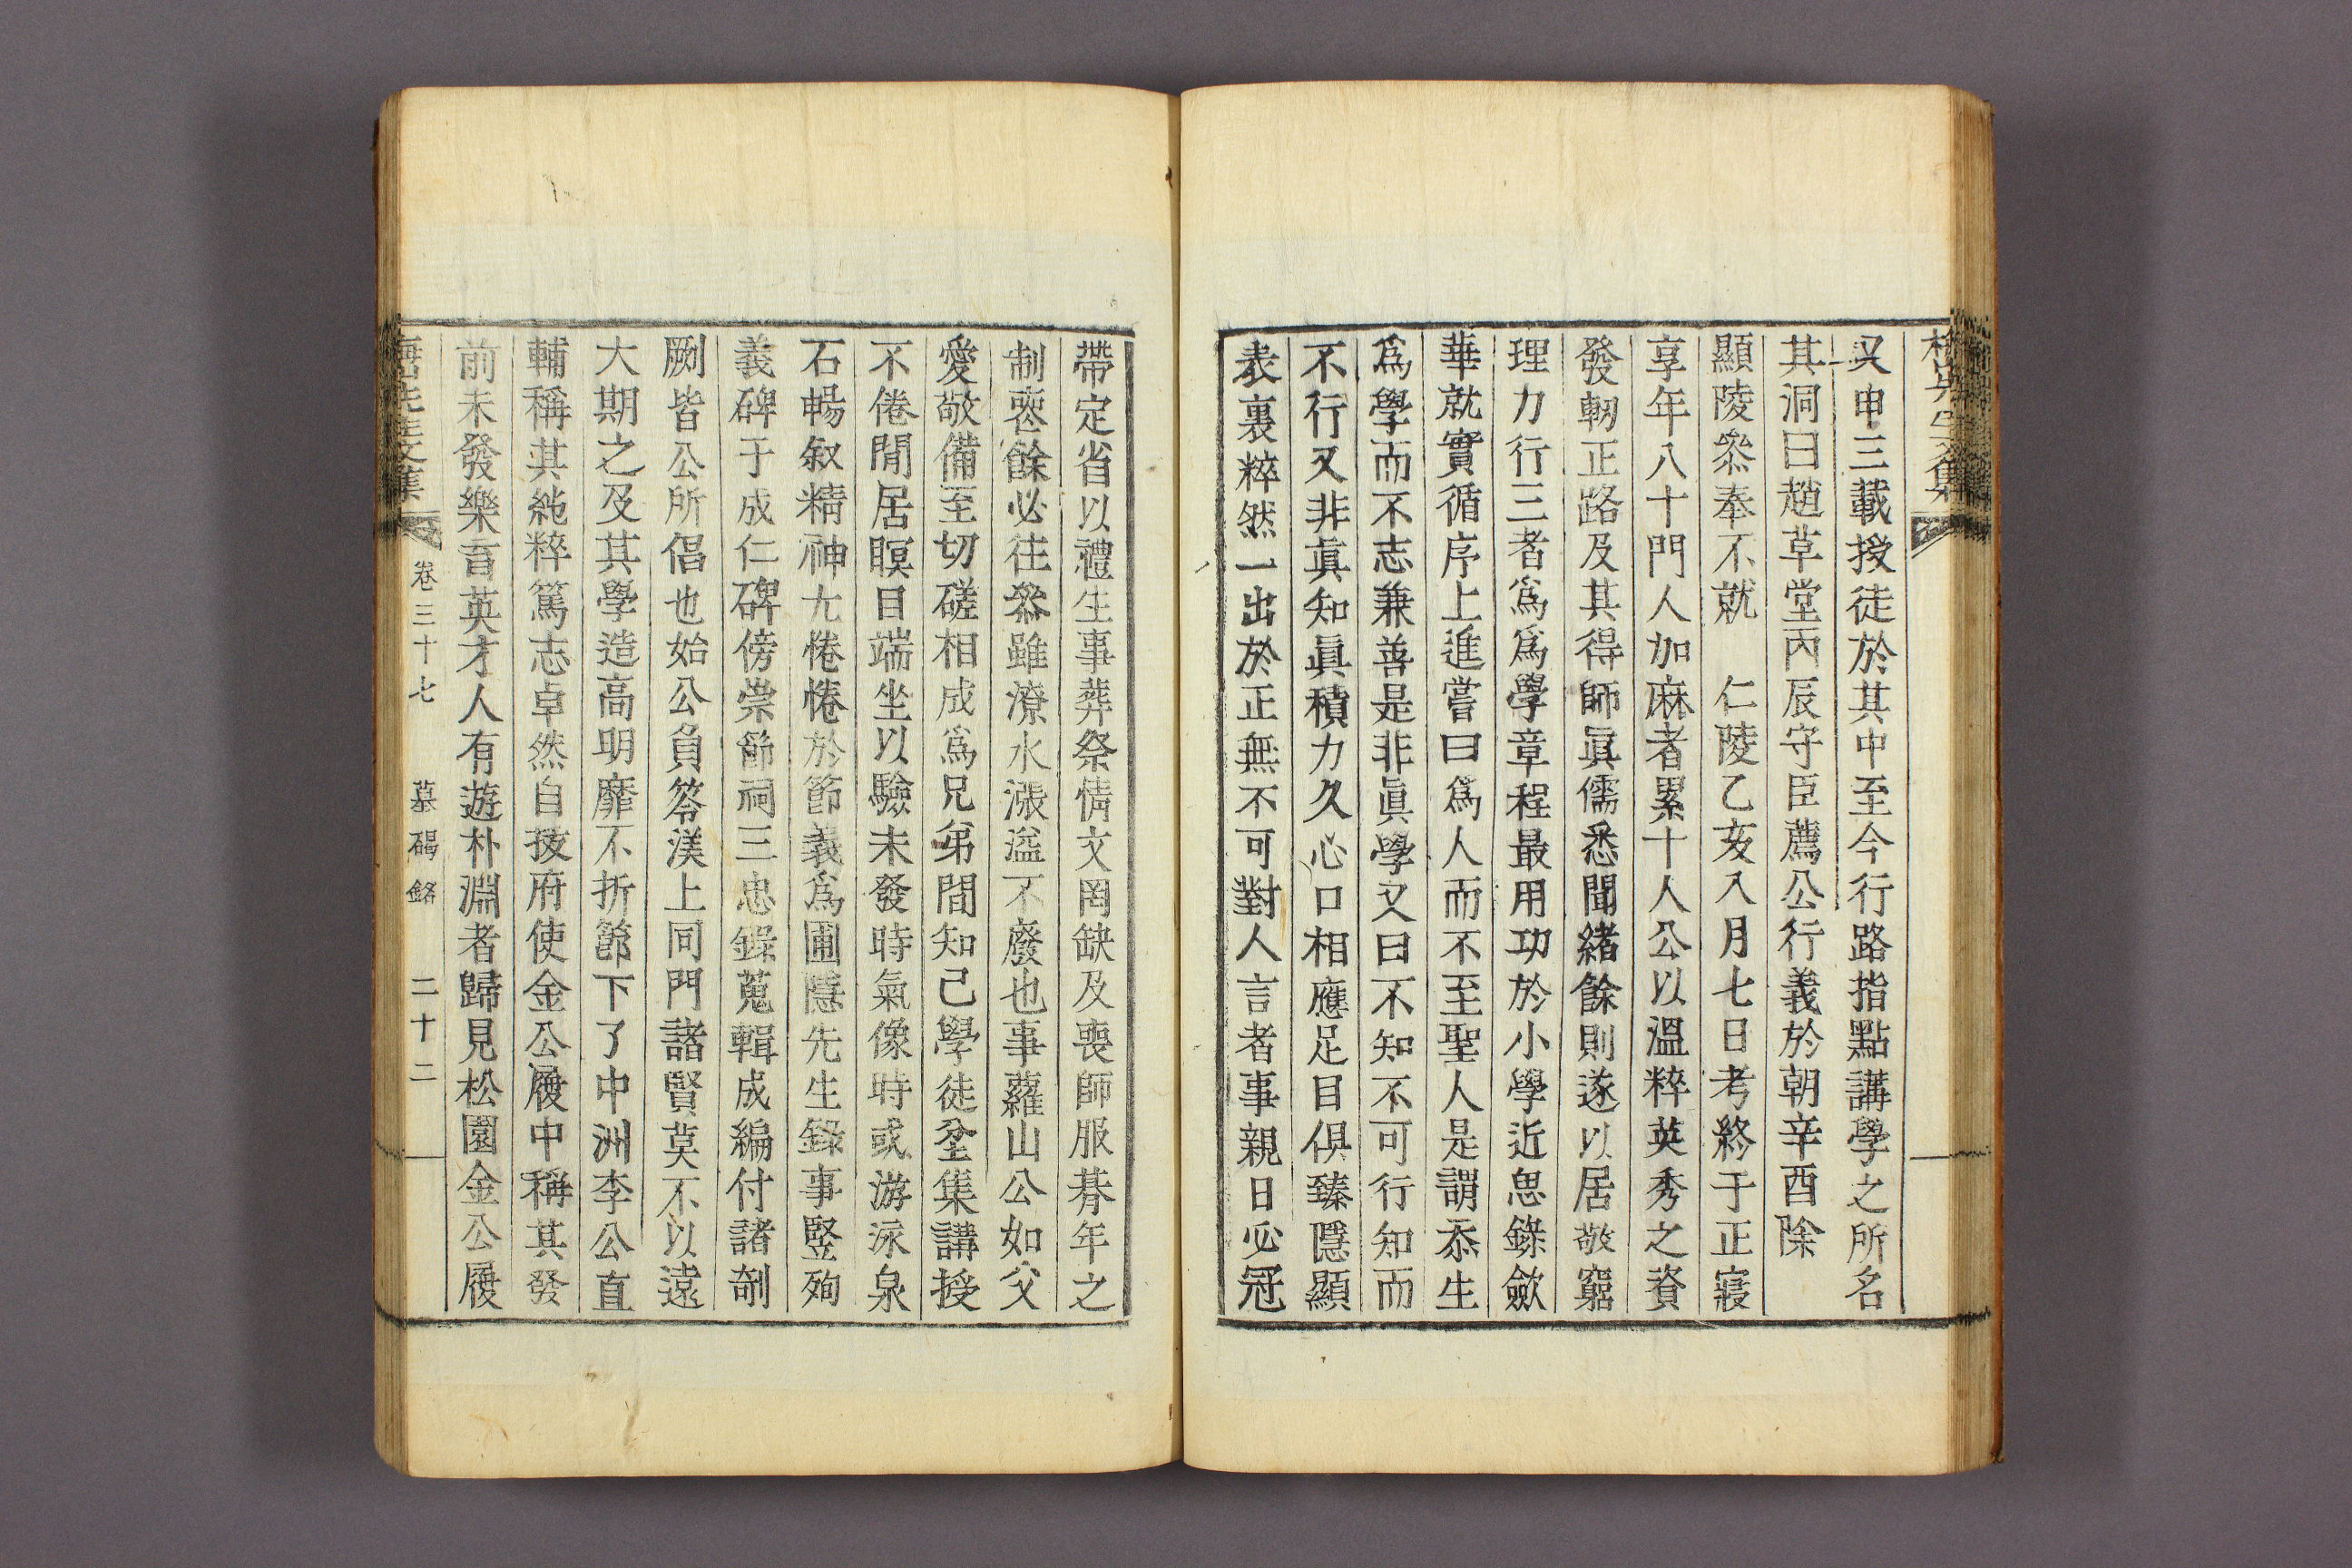 又申三載授徒於其中至今行路指點講學之所名
其洞曰趙草堂丙辰守臣薦公行義於朝辛酉除
顯陵叅奉不就 仁陵乙亥八月七日考終于正寢
享年八十門人加麻者累十人公以溫粹英秀之資
發軔正路及其得師眞儒悉聞緖餘則遂以居敬窮
理力行三者爲爲學章程最用功於小學近思錄歛
華就實循序上進嘗曰爲人而不至聖人是謂忝生
爲學而不志兼善是非眞學又曰不知不可行知而
不行又非眞知眞積力久心口相應足目俱臻隱顯
表裏粹然一出於正無不可對人言者事親日必冠
帶定省以禮生事葬祭情文罔缺及喪師服朞年之
制喪餘必往叅雖潦水漲溢不廢也事蘿山公如父
愛敬備至切磋相成爲兄弟間知己學徒坌集講授
不倦閒居瞑目端坐以驗未發時氣像時或游泳泉
石暢叙精神尤惓惓於節義爲圃隱先生錄事竪殉
義碑于成仁碑傍崇節祠三忠錄蒐輯成編付諸剞
劂皆公所倡也始公負笭渼上同門諸賢莫不以遠
大期之及其學造高明靡不折節下了中洲李公直
輔稱其純粹篤志卓然自拔府使金公履中稱其發
前未發樂育英才人有遊朴淵者歸見松園金公履
先生文集 卷三十七 墓碣銘 二十二